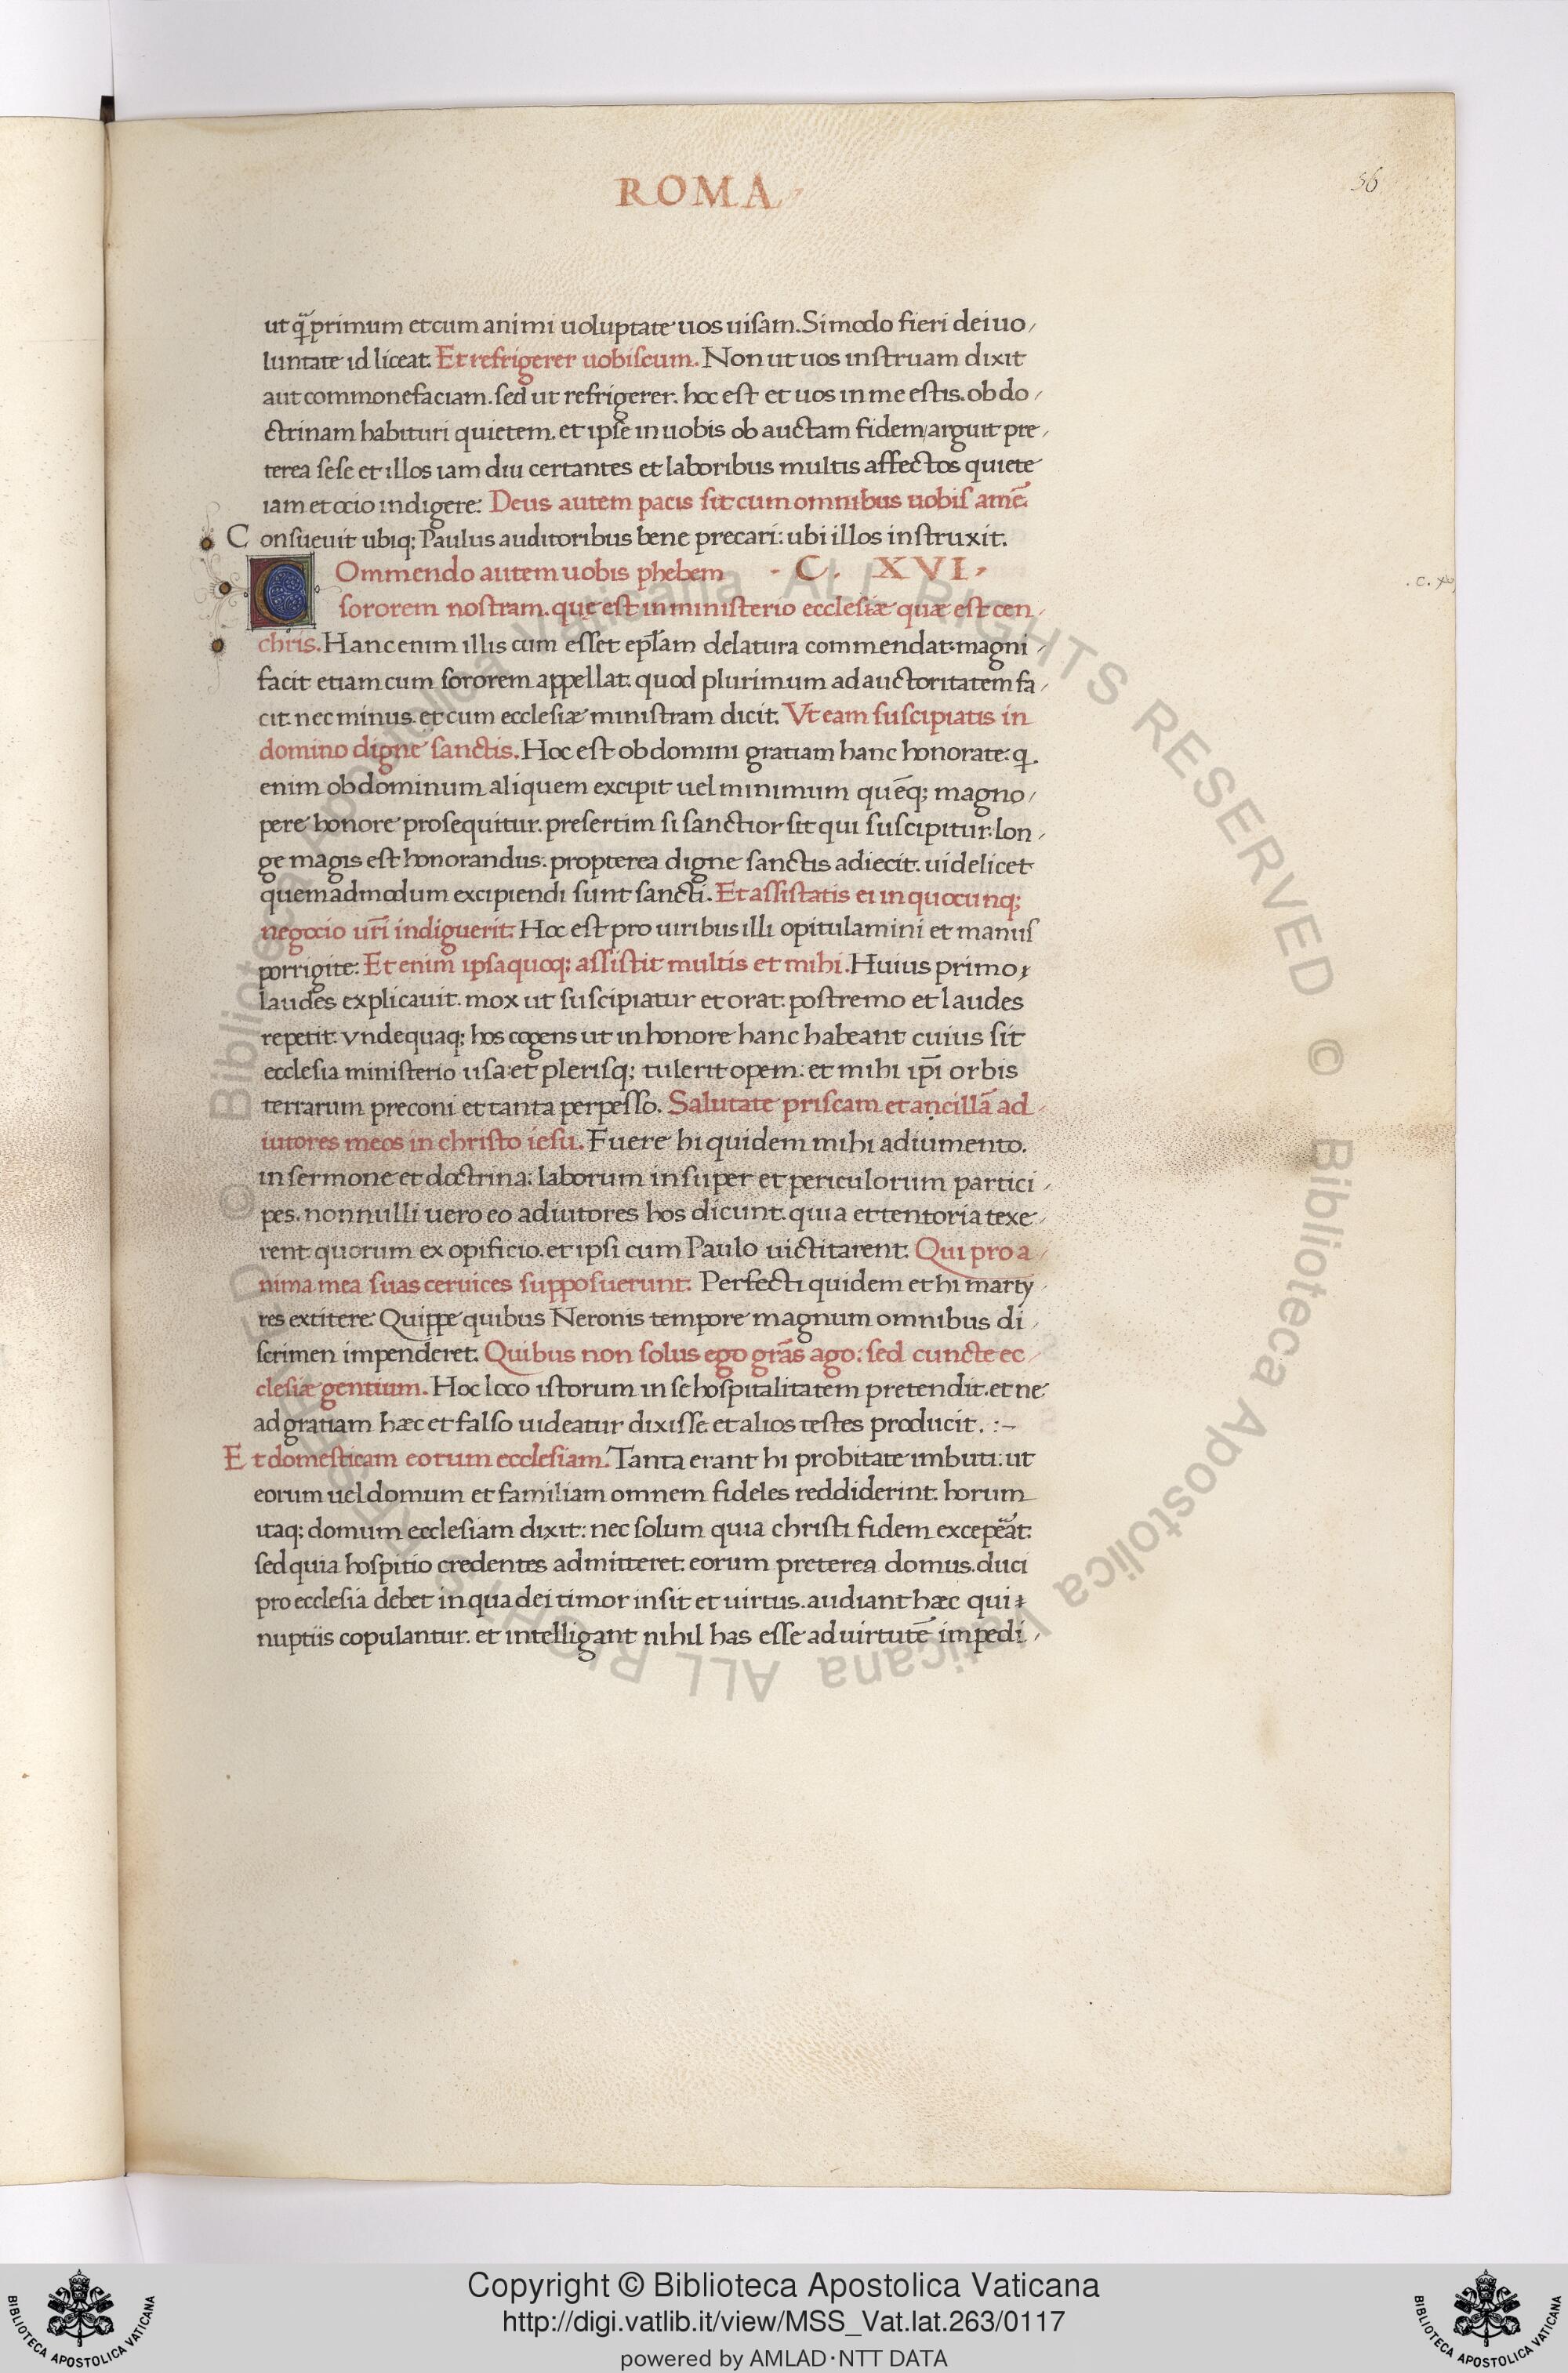 ROMA
56
ut q̃primum et cum animi uoluptate uos uisam. Si modo fieri dei uo/
luntate id liceat. Et refrigerer uobiscum. Non ut uos instruam dixit
aut commonefaciam. sed ut refrigerer. hoc est et uos in me estis. ob do/
ctrinam habituri quietem. et ipse in uobis ob auctam fidem/ arguit pre/
terea sese et illos iam diu certantes et laboribus multis affectos quiete
iam et ocio indigere: Deus autem pacis sit cum omnibus uobis amẽ.
Consueuit ubiq; Paulus auditoribus bene precari: ubi illos instruxit.
COmmendo autem uobis phebem · C. XVI.
sororem nostram. quę est in ministerio ecclesiæ quæ est cen/
chris. Hanc enim illis cum esset ep̃lam delatura commendat: magni/
facit etiam cum sororem appellat. quod plurimum ad auctoritatem fa/
cit. nec minus. et cum ecclesiæ ministram dicit. Vt eam suscipiatis in
domino digne sanctis. Hoc est ob domini gratiam hanc honorate: q.
enim ob dominum aliquem excipit uel minimum quẽq; magno/
pere honore prosequitur. presertim si sanctior sit qui suscipitur: lon/
ge magis est honorandus. propterea digne sanctis adiecit. uidelicet
quemadmodum excipiendi sunt sancti. Et assistatis ei in quocunq;
negocio ur̃i indiguerit. Hoc est pro uiribus illi opitulamini et manus
porrigite: Et enim ipsa quoq; assistit multis et mihi. Huius primo/
laudes explicauit. mox ut suscipiatur et orat. postremo et laudes
repetit. vndequaq; hos cogens ut in honore hanc habeant cuius sit
ecclesia ministerio usa: et plerisq; tulerit opem: et mihi ip̃i orbis
terrarum preconi et tanta perpesso. Salutate priscam et ancillã ad/
iutores meos in christo iesu. Fuere hi quidem mihi adiumento.
in sermone et doctrina: laborum insuper et periculorum partici/
pes. nonnulli uero eo adiutores hos dicunt. quia et tentoria texe/
rent. quorum ex opificio. et ipsi cum Paulo uictitarent. Qui pro a/
nima mea suas ceruices supposuerunt. Perfecti quidem et hi marty/
res extitere. Quippe quibus Neronis tempore magnum omnibus di/
scrimen impenderet. Quibus non solus ego gr̃as ago: sed cuncte ec/
clesiæ gentium. Hoc loco istorum in se hospitalitatem pretendit. et ne
ad gratiam hæc et falso uideatur dixisse. et alios testes producit. :-
Et domesticam eorum ecclesiam. Tanta erant hi probitate imbuti: ut
eorum uel domum et familiam omnem fideles reddiderint. horum
itaq; domum ecclesiam dixit: nec solum quia christi fidem excepeᷓat.
sed quia hospitio credentes admitteret. eorum preterea domus. duci
pro ecclesia debet in qua dei timor insit et uirtus. audiant hæc qui
nuptiis copulantur. et intelligant nihil has esse ad uirtutẽ impedi/
Copyright © Biblioteca Apostolica Vaticana
http://digi.vatlib.it/view/MSS_Vat.lat.263/0117
powered by AMLAD·NTT DATA
BIBLIOTECA APOSTOLICA VATICANA
BIBLIOTECA APOSTOLICA VATICANA
© Biblioteca Apostolica Vaticana ALL RIGHTS RESERVED
© Biblioteca Apostolica Vaticana ALL RIGHTS RESERVED